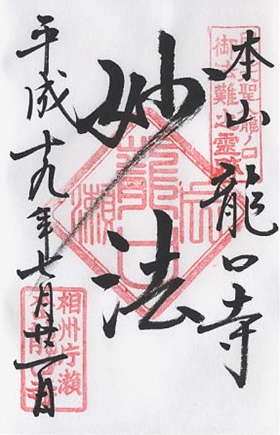 本山 龍口寺
聖 龍ノ口
御法難之霊
妙法
龍口
平成十九年七月廿一日
相州片瀬
龍口寺